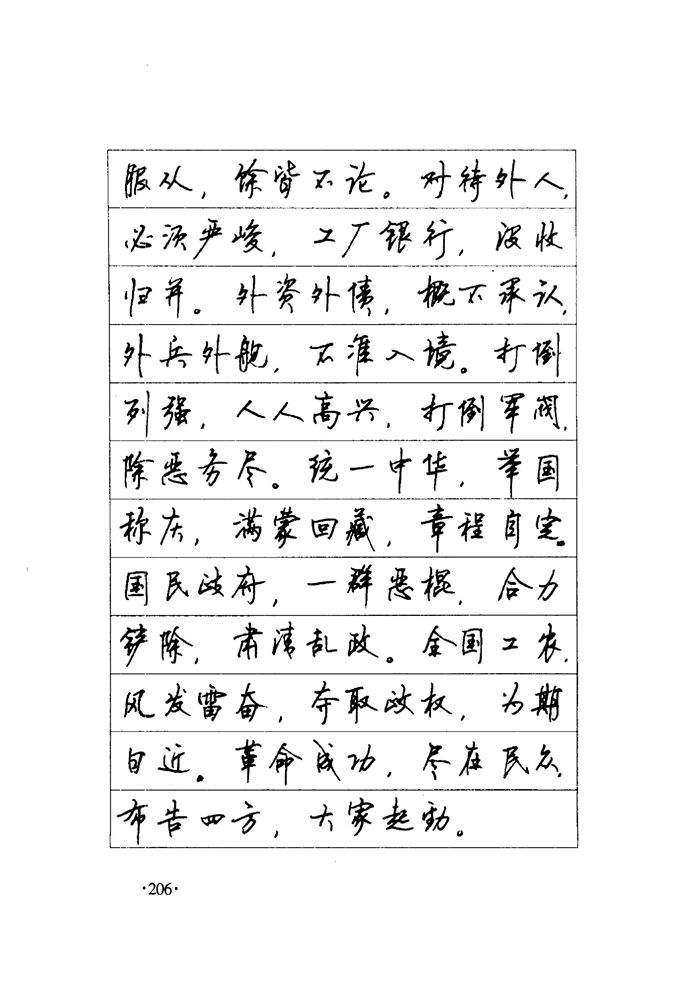 服从，馀皆不论。对待外人，
必须严峻，工厂银行，没收
归并。外资外债，概不承认，
外兵外舰，不准入境。打倒
列强，人人高兴，打倒军阀，
除恶务尽。统一中华，举国
称庆，满蒙回藏，章程自定。
国民政府，一群恶棍，合力
铲除，肃清乱政。全国工农，
风发雷奋，夺取政权，为期
日近。革命成功，尽在民众，
布告四方，大家起动。
·206·